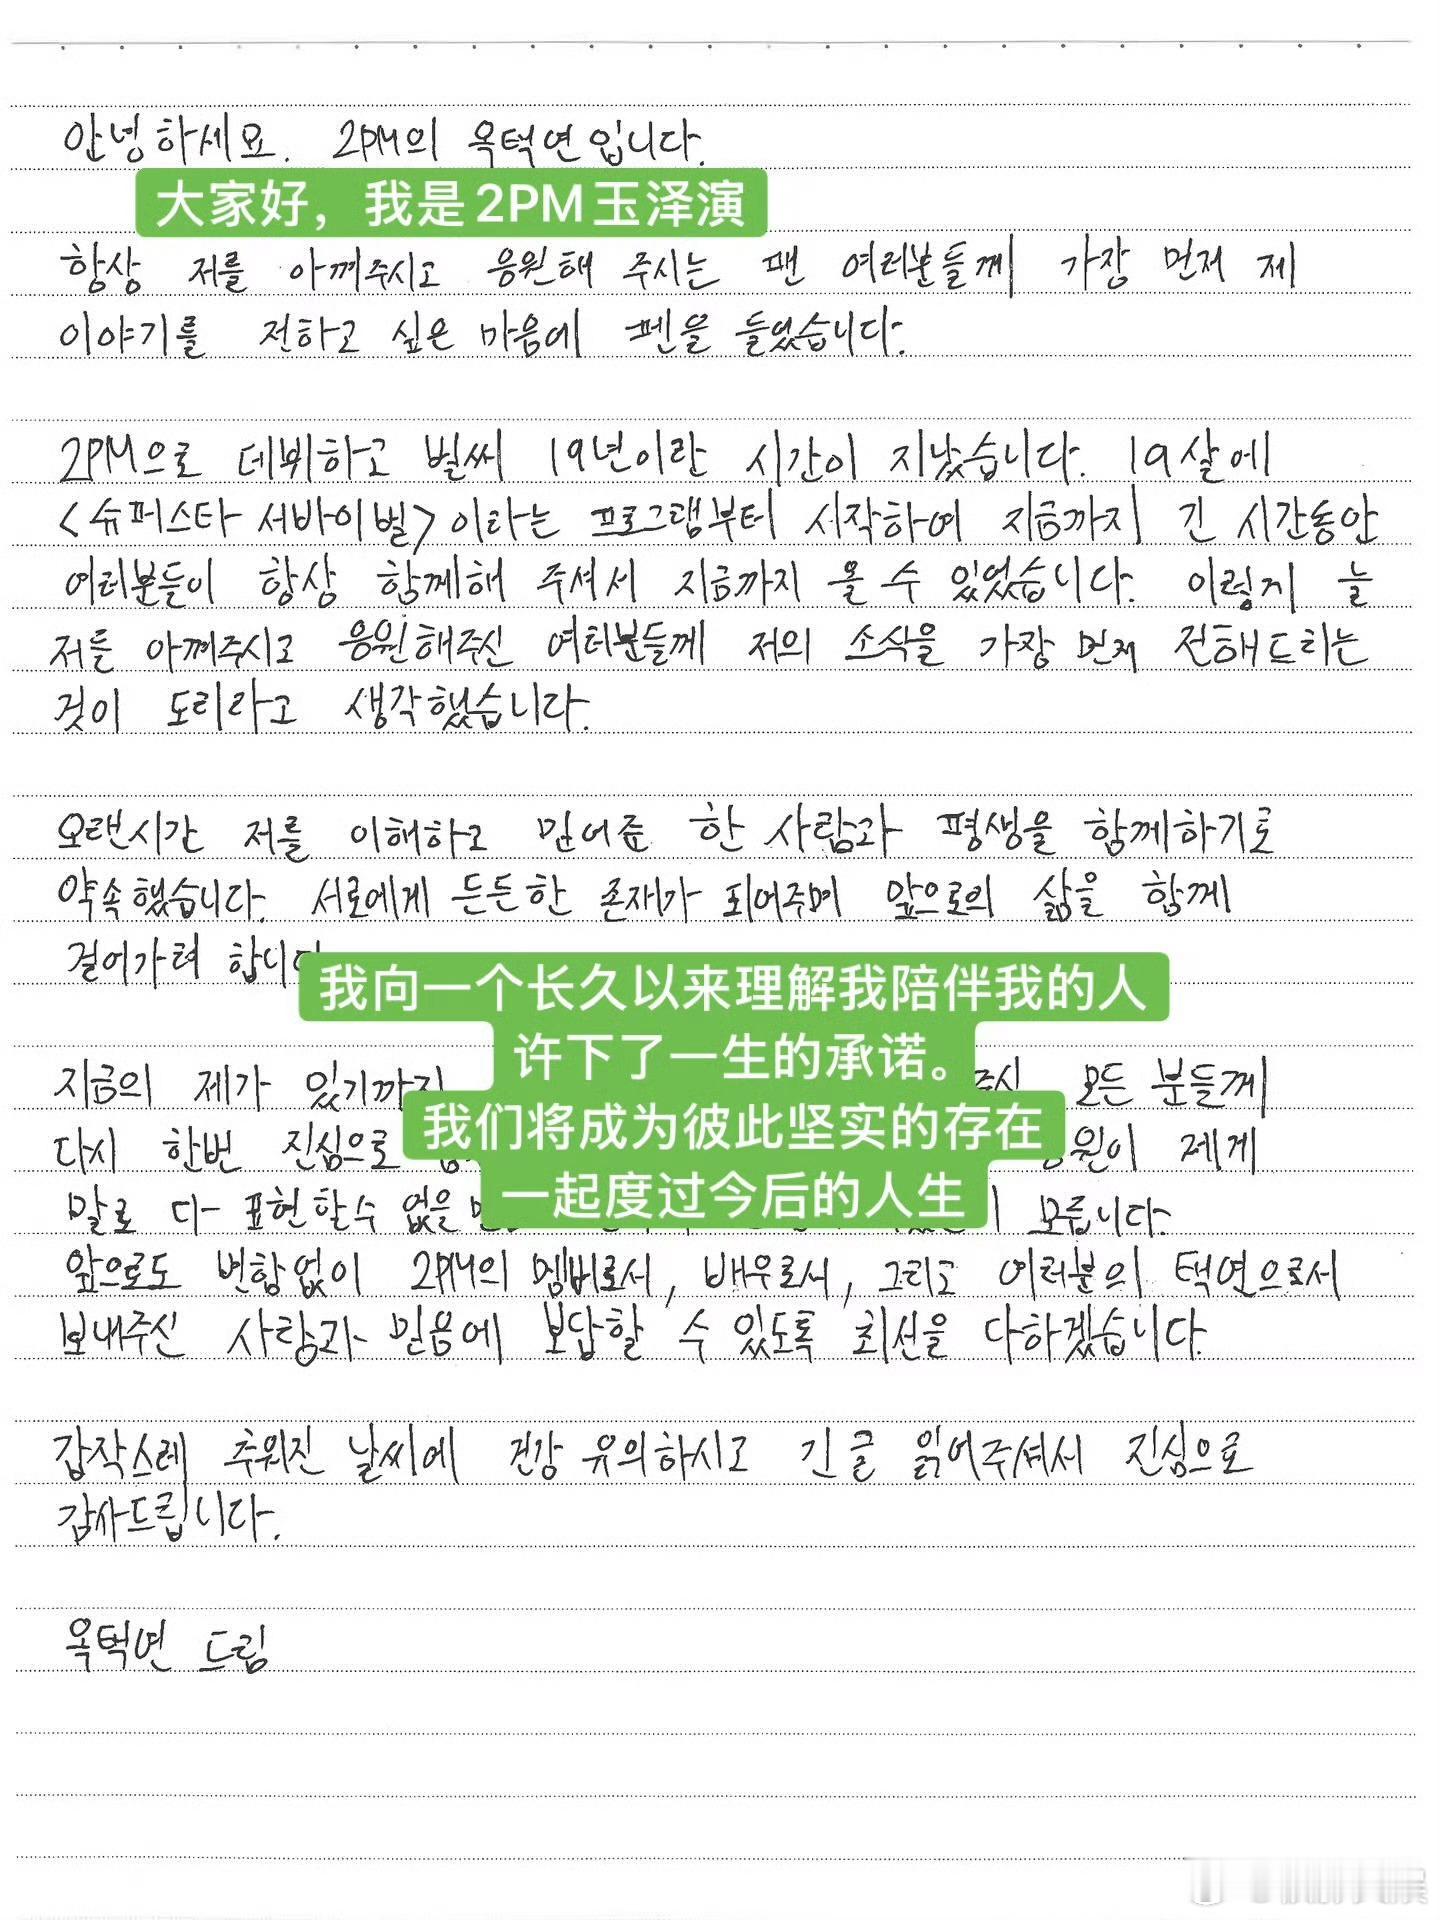 안녕하세요. 2PM의 옥택연입니다.
大家好，我是2PM玉泽演
항상 저를 아껴주시고 응원해 주시는 팬 여러분들께 가장 먼저 제
이야기를 전하고 싶은 마음에 펜을 들었습니다.
2PM으로 데뷔하고 벌써 19년이란 시간이 지났습니다. 19살에
<슈퍼스타 서바이벌>이라는 프로그램부터 시작하여 지금까지 긴 시간동안
여러분들이 항상 함께해 주셔서 지금까지 올 수 있었습니다. 이렇게 늘
저를 아껴주시고 응원해주신 여러분들께 저의 소식을 가장 먼저 전해드리는
것이 도리라고 생각했습니다.
오랜시간 저를 이해하고 믿어준 한 사람과 평생을 함께하기로
약속했습니다. 서로에게 든든한 존재가 되어주며 앞으로의 삶을 함께
걸어가려 합니다
我向一个长久以来理解我陪伴我的人
许下了一生的承诺。
지금의 제가 있기까지 주신 모든 분들께
我们将成为彼此坚实的存在
다시 한번 진심으로 응원이 제게
一起度过今后的人生
말로 다 표현할수 없을 모릅니다.
앞으로도 변함없이 2PM의 멤버로서, 배우로서, 그리고 여러분의 택연으로서
보내주신 사랑과 믿음에 보답할 수 있도록 최선을 다하겠습니다.
갑작스레 추워진 날씨에 건강 유의하시고 긴 글 읽어주셔서 진심으로
감사드립니다.
옥택연 드림